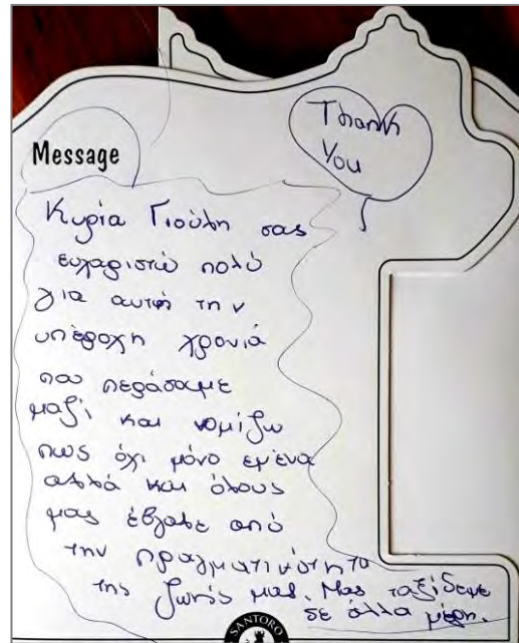 Thank
You
Message
Κυρία Γιούλη σας
ευχαριστώ πολύ
για αυτή την
υπέροχη χρονιά
που περάσαμε
μαζί και νομίζω
πως όχι μόνο εμένα
αλλά και όλους
μας έβγαλε από
την πραγματικότητα
της ζωής μας. Μας ταξίδεψε
σε άλλα μέρη.
SANTORO